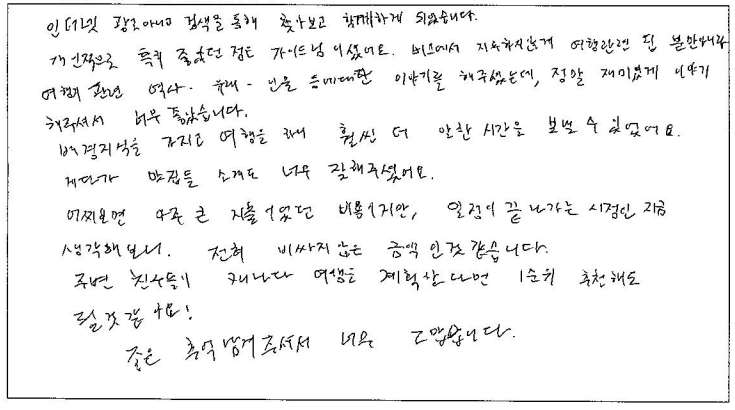 인터넷 광고아니고 검색을 통해 찾아보고 함께하게 되었습니다.
개인적으로 특히 좋았던 점은 가이드님이셨어요. 버스에서 지루하지않게 여행관련 팁 뿐만아니라
여행지 관련 역사 · 유래 · 인물 등에대한 이야기를 해주셨는데, 정말 재미있게 이야기
해주셔서 너무 좋았습니다.
배경지식을 가지고 여행을 하니 훨씬 더 알찬 시간을 보낼 수 있었어요.
게다가 맛집들 소개도 너무 잘해주셨어요.
어찌보면 아주 큰 지출이었던 비용이지만, 일정이 끝나가는 시점인 지금
생각해보니. 전혀 비싸지 않은 금액인것 같습니다.
주변 친구들이 캐나다 여행을 계획한다면 1순위 추천해도
될것 같아요!
좋은 추억 남겨주셔서 너무 고맙습니다.